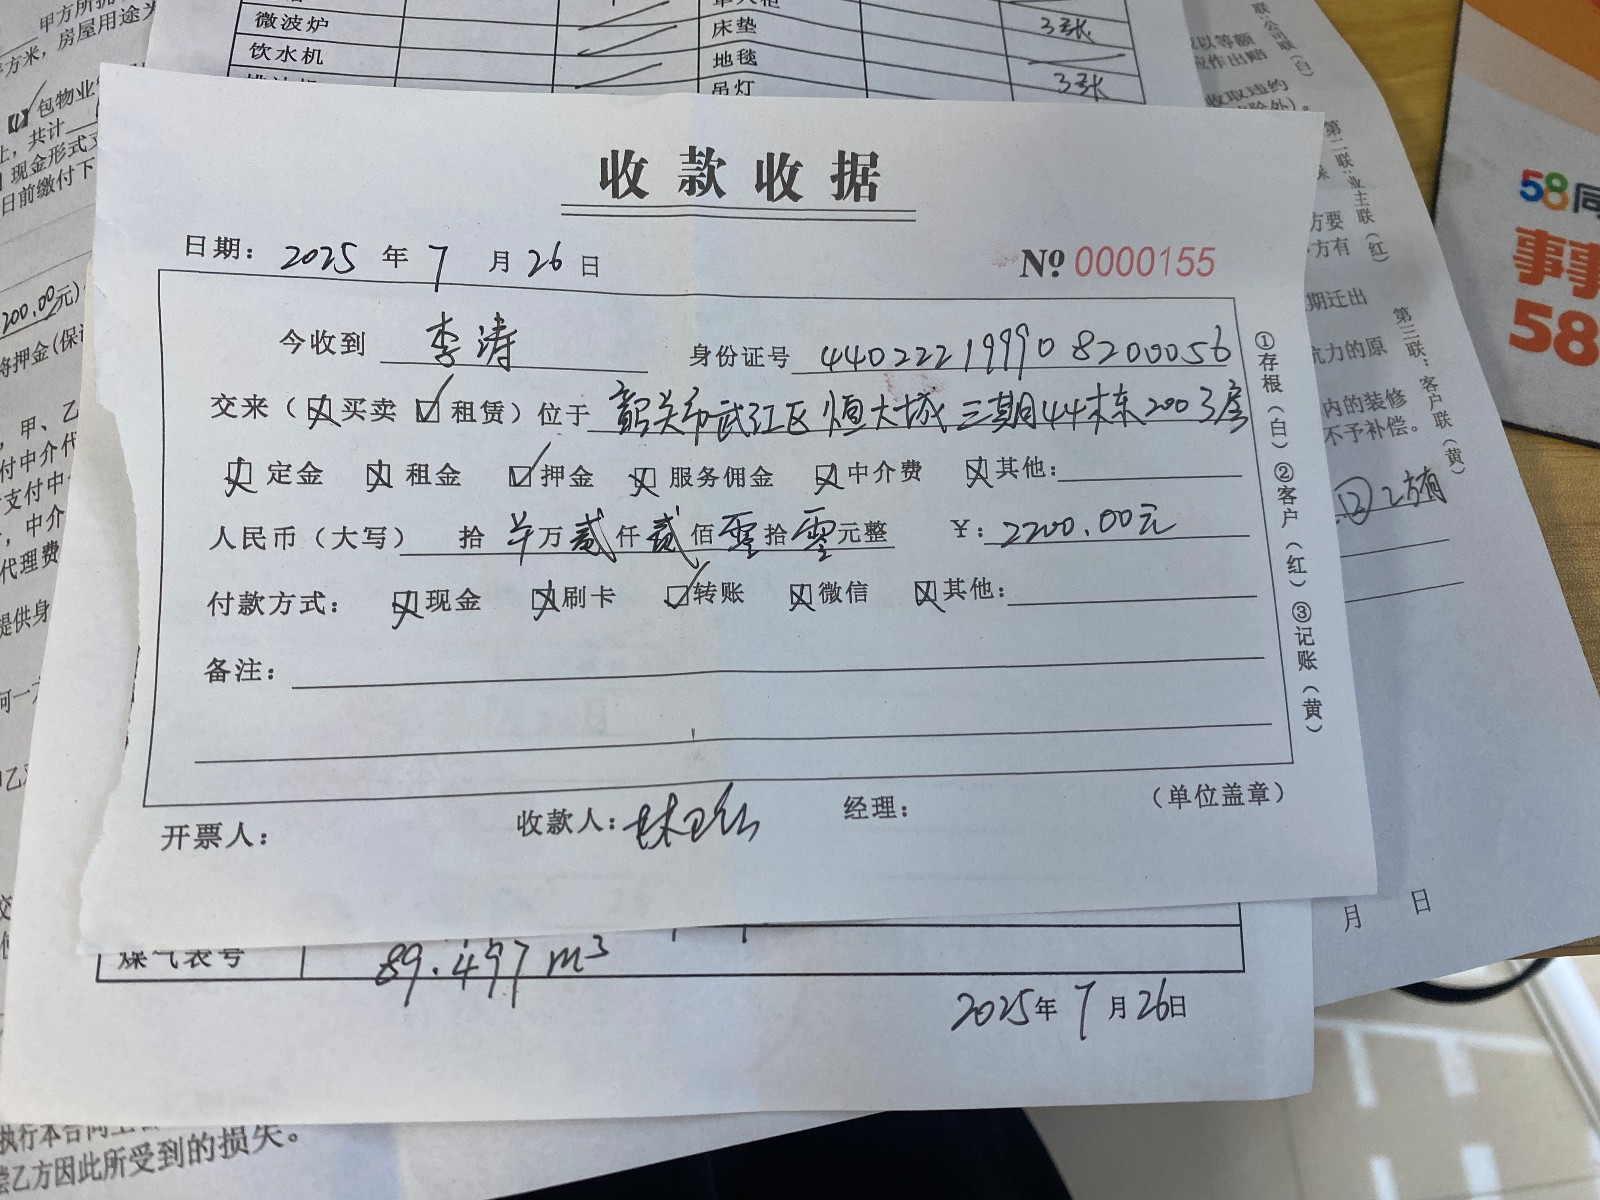 甲方所拥
平方米，房屋用途为
包物业
上，共计
现金形式支
日前缴付下
200.00元)
将押金(保证
，甲、乙
付中介代
支付中
，中介
代理费
提供身
何一方
微波炉
床垫 3张
饮水机
地毯
吊灯 3张
收款收据
日期： 2025 年 7 月 26 日
№ 0000155
今收到 李涛 身份证号 440222199908200056
交来（ 买卖 租赁）位于 韶关市武江区恒大城三期44栋2003房
定金 租金 押金 服务佣金 中介费 其他：
人民币（大写） 拾 万 贰 仟 贰 佰 零 拾 零 元整 ¥： 2200.00元
付款方式： 现金 刷卡 转账 微信 其他：
备注：
开票人： 收款人： 经理： （单位盖章）
①存根（白）②客户（红）③记账（黄）
煤气表号 89.497 m³
2025年 7 月 26日
执行本合同
偿乙方因此所受到的损失。
联：公司联（白）
第二联：业主联（红）
第三联：客户联（黄）
以等额
应作出赔
收取违约
除外)。
方要
方有
期迁出
抗力的原
内的装修
不予补偿。
月 日
58同
事事
58